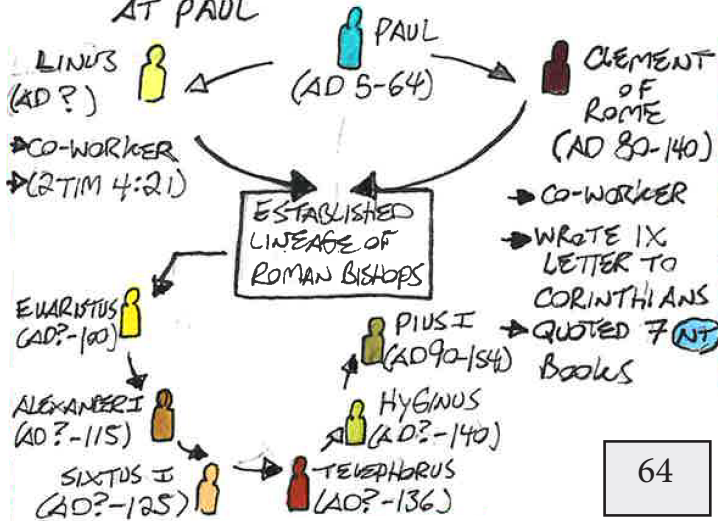 AT PAUL
PAUL
(AD 5-64)
LINUS
(AD ?)
CO-WORKER
(2TIM 4:21)
CLEMENT
OF
ROME
(AD 80-140)
CO-WORKER
WROTE 1X
LETTER TO
CORINTHIANS
QUOTED 7 NT
BOOKS
ESTABLISHED
LINEAGE OF
ROMAN BISHOPS
EVARISTUS
(AD?-100)
ALEXANDER I
(AD?-115)
SIXTUS I
(AD?-125)
TELEPHORUS
(AD?-136)
HYGINUS
(AD?-140)
PIUS I
(AD90-154)
64